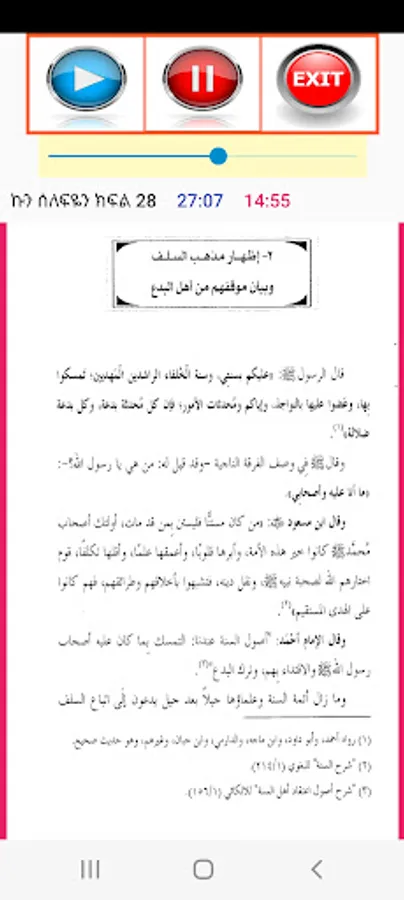 EXIT
ኩን ሰለፍዬን ክፍል 28 27:07 14:55
٢- إظهار مذهب السلف
وبيان موقفهم من أهل البدع
قال الرسول ﷺ: «عليكم بسنتي، وسنة الخلفاء الراشدين المهديين؛ تمسكوا
بها، وعضوا عليها بالنواجذ، وإياكم ومُحدثات الأمور؛ فإن كل مُحدثة بدعة، وكل بدعة
ضلالة»(١).
وقال ﷺ في وصف الفرقة الناجية -وقد قيل له: من هي يا رسول الله؟-:
«ما أنا عليه وأصحابي».
وقال ابن مسعود: «من كان مستنًّا فليستن بِمن قد مات، أولئك أصحاب
مُحمَّد ﷺ كانوا خير هذه الأمة، وأبرها قلوبًا، وأعمقها علمًا، وأقلها تكلفًا، قوم
اختارهم الله لصحبة نبيه ﷺ، ونقل دينه، فتشبهوا بأخلاقهم وطرائقهم، فهم كانوا
على الهدى المستقيم»(٢).
وقال الإمام أحمد: "أصول السنة عندنا: التمسك بِما كان عليه أصحاب
رسول الله ﷺ والاقتداء بِهم، وترك البدع"(٣).
وما زال أئمة السنة وعلماؤها جيلاً بعد جيل يدعون إلَى اتباع السلف
(١) رواه أحمد، وأبو داود، وابن ماجه، والدارمي، وابن حبان، وغيرهم، وهو حديث صحيح.
(٢) "شرح السنة" للبغوي (٢١٤/١).
(٣) "شرح أصول اعتقاد أهل السنة" للالكائي (١٥٦/١).